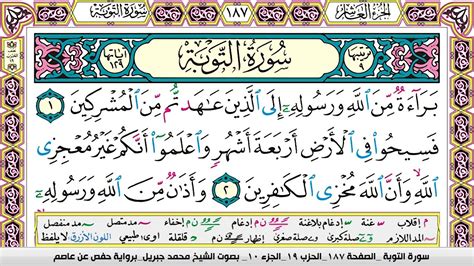 الجزء العاشر
١٨٧
سورة التوبة
ترتيبها ٩
سورة التوبة
آياتها ١٢٩
بَرَآءَةٌ مِّنَ ٱللَّهِ وَرَسُولِهِۦٓ إِلَى ٱلَّذِينَ عَٰهَدتُّم مِّنَ ٱلۡمُشۡرِكِينَ ١
فَسِيحُواْ فِي ٱلۡأَرۡضِ أَرۡبَعَةَ أَشۡهُرٖ وَٱعۡلَمُوٓاْ أَنَّكُمۡ غَيۡرُ مُعۡجِزِي
ٱللَّهِ وَأَنَّ ٱللَّهَ مُخۡزِي ٱلۡكَٰفِرِينَ ٢ وَأَذَٰنٞ مِّنَ ٱللَّهِ وَرَسُولِهِۦٓ
م إقلاب غنة إدغام بلاغنة إدغام إخفاء مد متصل مد منفصل
المد اللازم صلة كبرى صلة صغرى إظهار قلقلة مد طبيعي اللون الأزرق لا يلفظ
سورة التوبة _ الصفحة ١٨٧ _ الحزب ١٩ _ الجزء ١٠ _ بصوت الشيخ محمد جبريل _ برواية حفص عن عاصم